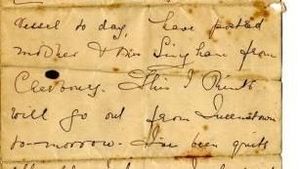 vessel to day, have posted
mother & Miss Bingham from
Cherbourg. This I think
will go out from Queenstown
to-morrow. I've been quite